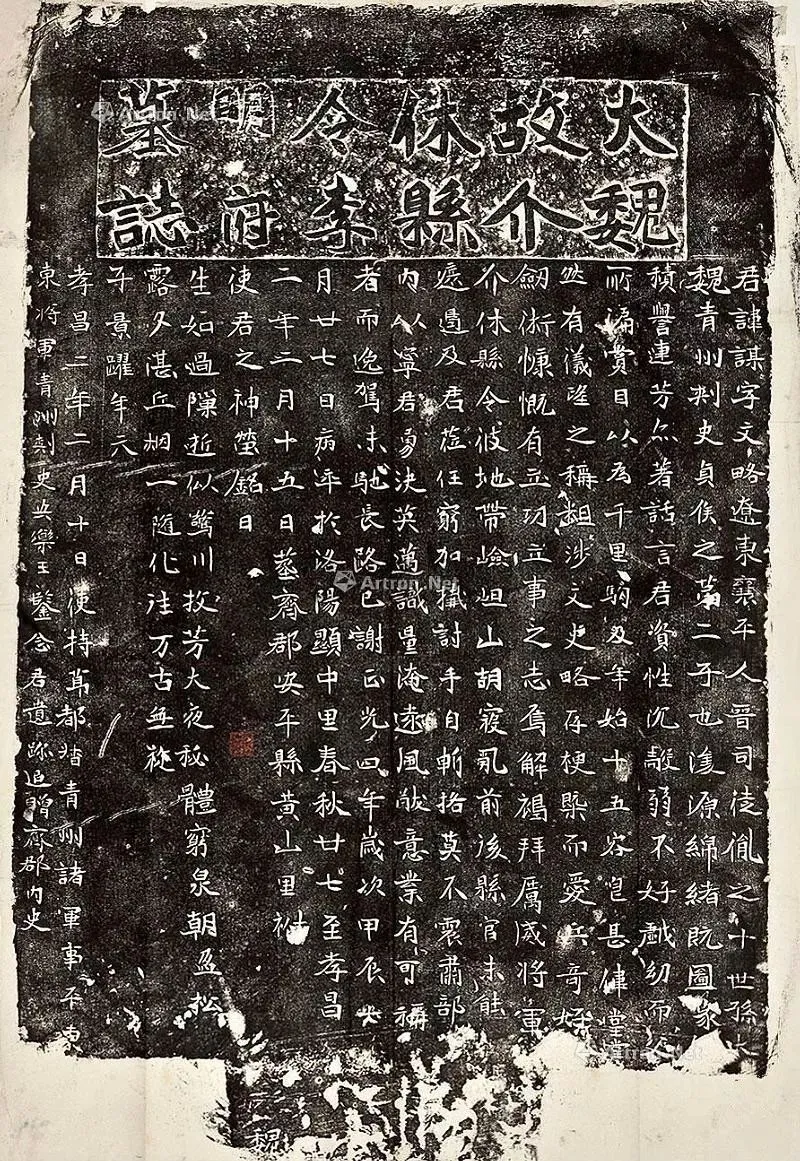 大魏
故介
休縣
令李
明府
墓誌
君諱謀字文略遼東襄平人晉司徒胤之十世孫大
魏青州刺史貞侯之第二子也浚源綿緒既圖篆
積譽連芳亦著話言君資性沉毅弱不好戲幼而
所謂賞目以為千里駒及年始十五容皃甚偉堂堂
然有儀望之稱粗涉文史略存梗槩而愛兵奇好
劒術慷慨有立功立事之志焉解褐拜厲威將軍
介休縣令彼地帶嶮岨山胡寇亂前後縣官未能
遏及君莅任窮加擒討手自斬挌莫不震肅部
內以寧君勇決英邁識量淹遠風猷意業有可稱
者而逸駕未馳長路已謝正光四年歲次甲辰
月廿七日病卒於洛陽顯中里春秋廿七至孝昌
二年二月十五日葬齊郡安平縣黃山里祔
使君之神塋銘曰
生如過隟逝似驚川投芳大夜秘體窮泉朝盈松
露夕湛丘烟一隨化往万古無旋
子景躍年六
孝昌二年二月十日使持節都督青州諸軍事平東
東將軍青州刺史安樂王鑒念君遺跡追贈齊郡內史
魏
Artron.Net
Artron.Net
Artron.Net
Artron.Net